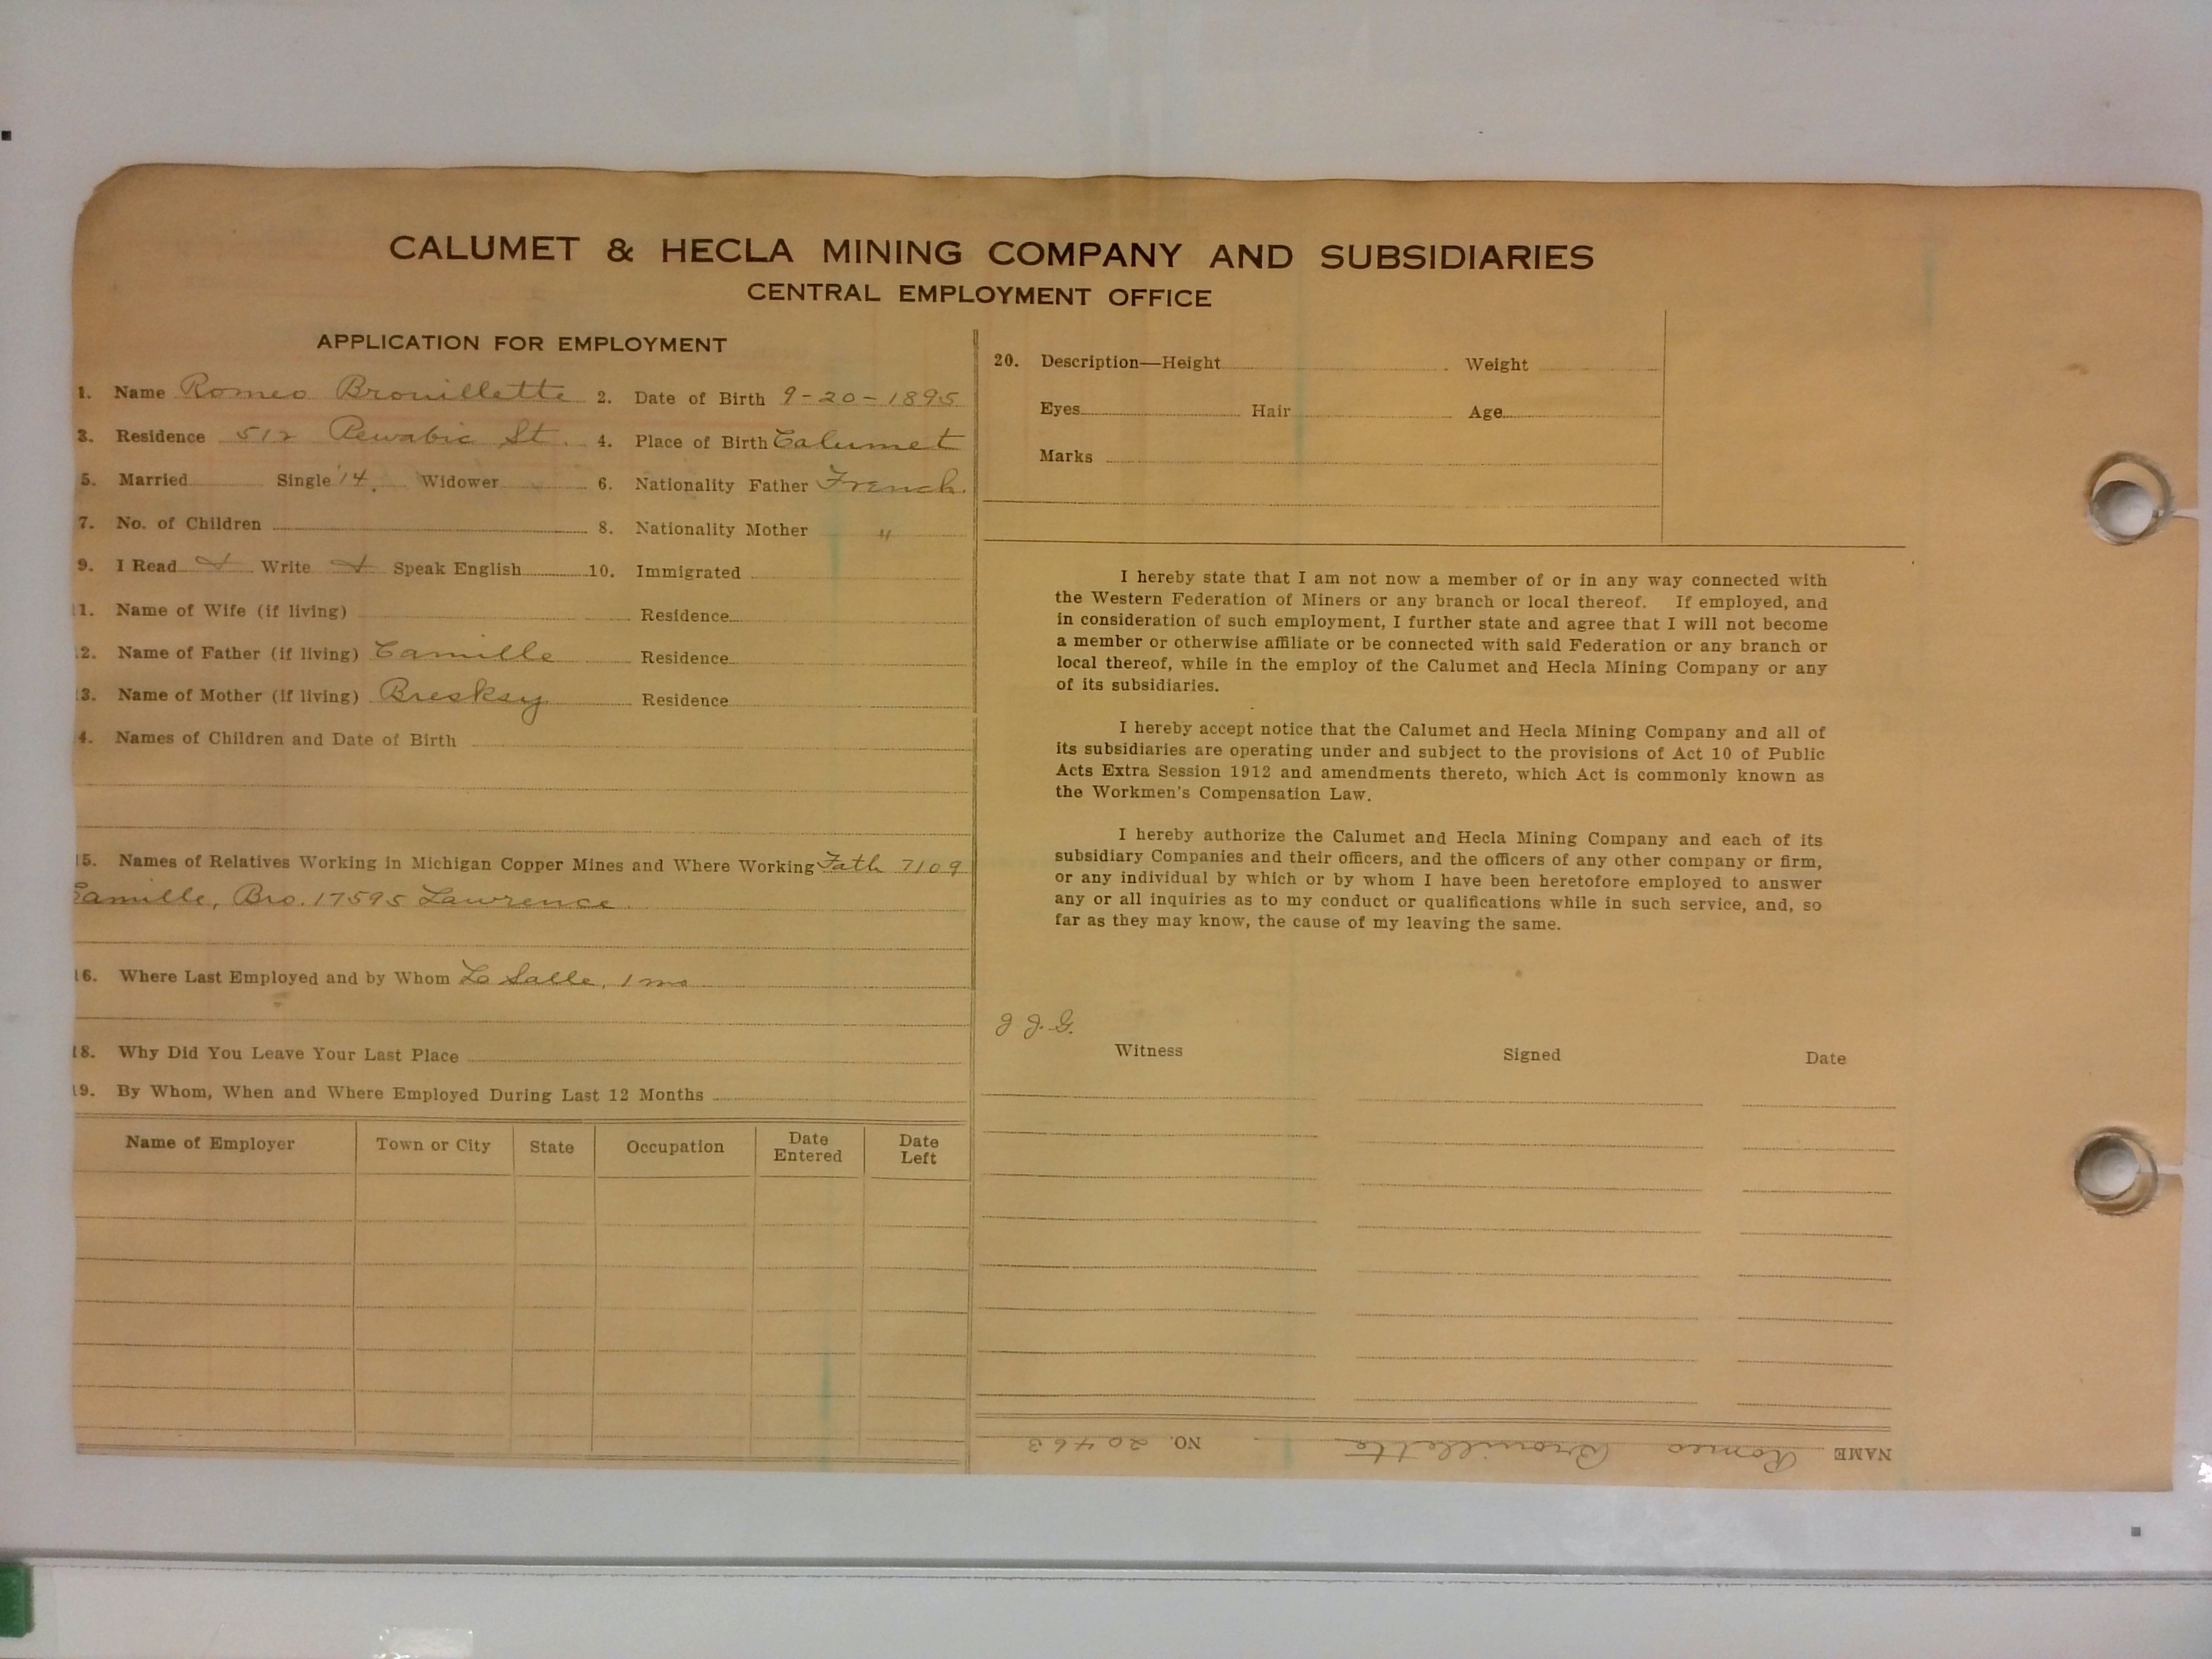 CALUMET & HECLA MINING COMPANY AND SUBSIDIARIES
CENTRAL EMPLOYMENT OFFICE
APPLICATION FOR EMPLOYMENT
1. Name Romeo Brouillette 2. Date of Birth 9-20-1895
3. Residence 512 Pewabic St. 4. Place of Birth Calumet
5. Married Single '14. Widower 6. Nationality Father French.
7. No. of Children 8. Nationality Mother "
9. I Read Write Speak English 10. Immigrated
11. Name of Wife (if living) Residence
12. Name of Father (if living) Camille Residence
13. Name of Mother (if living) Residence
14. Names of Children and Date of Birth
15. Names of Relatives Working in Michigan Copper Mines and Where Working Fath 7109
Camille, Bro. 17595 Lawrence.
16. Where Last Employed and by Whom La Salle, 1 mo
18. Why Did You Leave Your Last Place
19. By Whom, When and Where Employed During Last 12 Months
Name of Employer Town or City State Occupation Date Entered Date Left
20. Description—Height Weight
Eyes Hair Age
Marks
I hereby state that I am not now a member of or in any way connected with
the Western Federation of Miners or any branch or local thereof. If employed, and
in consideration of such employment, I further state and agree that I will not become
a member or otherwise affiliate or be connected with said Federation or any branch or
local thereof, while in the employ of the Calumet and Hecla Mining Company or any
of its subsidiaries.
I hereby accept notice that the Calumet and Hecla Mining Company and all of
its subsidiaries are operating under and subject to the provisions of Act 10 of Public
Acts Extra Session 1912 and amendments thereto, which Act is commonly known as
the Workmen's Compensation Law.
I hereby authorize the Calumet and Hecla Mining Company and each of its
subsidiary Companies and their officers, and the officers of any other company or firm,
or any individual by which or by whom I have been heretofore employed to answer
any or all inquiries as to my conduct or qualifications while in such service, and, so
far as they may know, the cause of my leaving the same.
J.G.
Witness Signed Date
NAME Romeo Brouillette NO. 20463